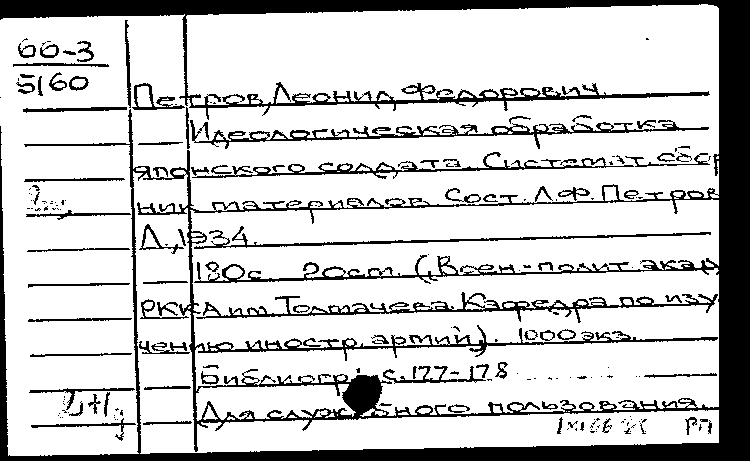 66-3
5160
Петров, Леонид Федорович.
Идеологическая обработка
японского солдата. Системат. сбор
ник материалов. Сост. Л.Ф. Петров
Л., 1934.
180с. Рост. (Воен.-полит. акад
РККА им. Толмачева. Кафедра по изу
чению иностр. армий). 1000 экз.
Библиогр: с. 177-178
Для служебного пользования.
РП